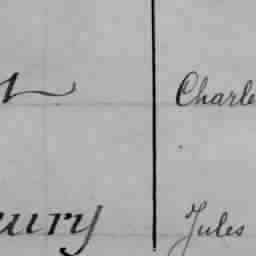 Charle
ury Jules